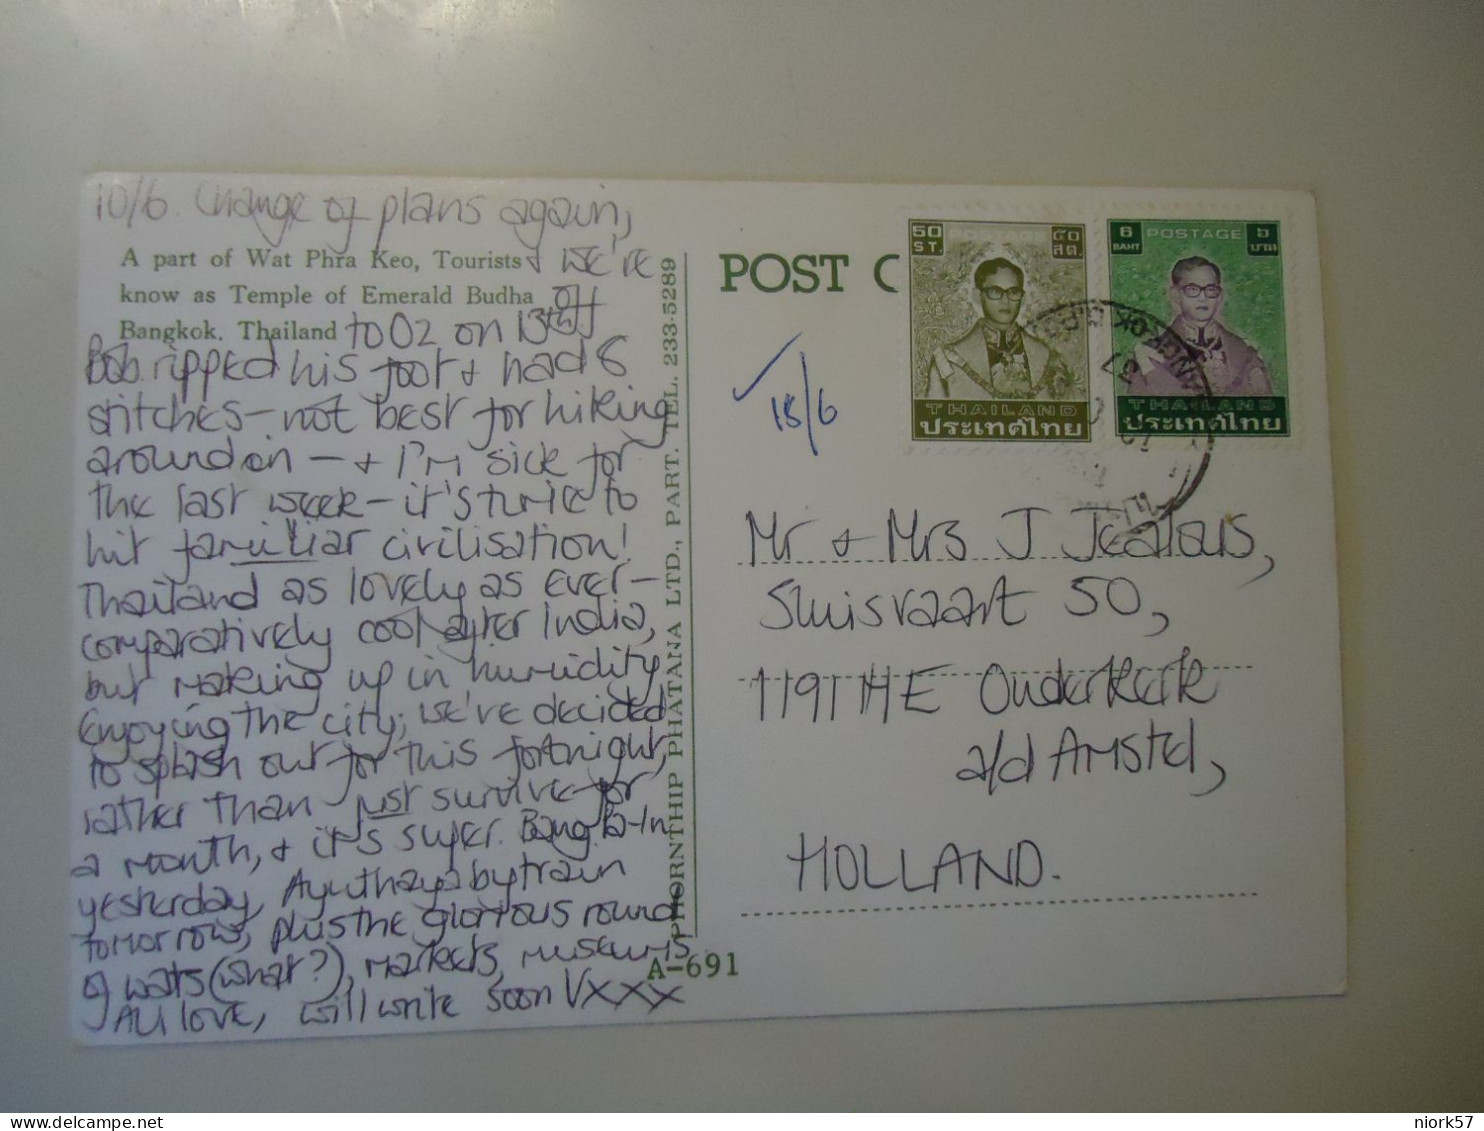 10/6. Change of plans again,
A part of Wat Phra Keo, Tourists & we're
know as Temple of Emerald Budha off
Bangkok. Thailand to Oz on 13th
Bob ripped his foot & had 8
stitches - not best for hiking
around on - & I'm sick for
the last week - it's time to
hit familiar civilisation!
Thailand as lovely as ever -
comparatively cool after India,
but making up in humidity
Enjoying the city; we've decided
to splash out for this fortnight,
rather than just survive for
a month, & it's super. Bang Pa-In
yesterday, Ayuthaya by train
tomorrow, plus the glorious round
of wats (what?), markets, museums.
All love, will write soon Vxxx
PHORNTHIP PHATANA LTD., PART. TEL. 233-5289
A-691
POST C
18/6
50
ST.
๕๐
สต.
THAILAND
ประเทศไทย
6
BAHT
POSTAGE
๖
บาท
THAILAND
ประเทศไทย
Mr & Mrs J
Sluisvaart 50,
1191 HE Ouderkerk
a/d Amstel,
HOLLAND.
niork57